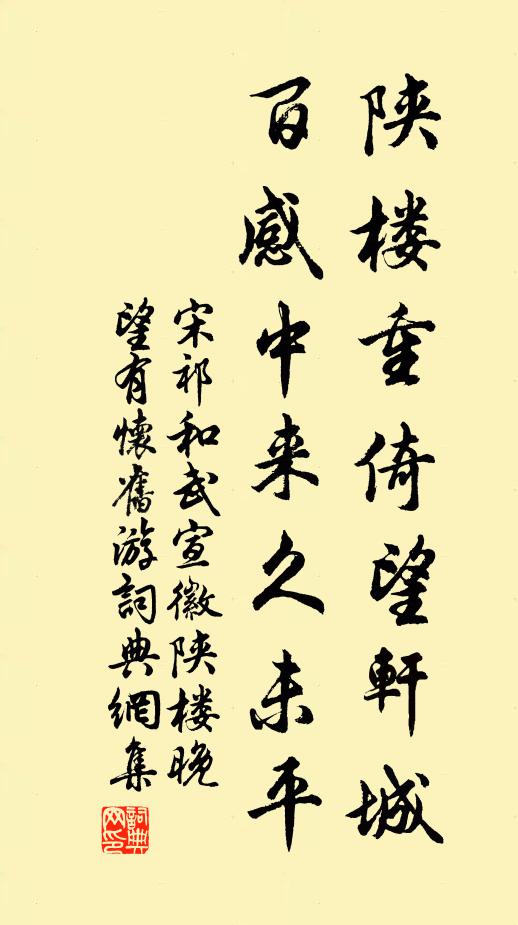 陕楼重倚望軒城
百感中来久未平
宋祁和武宣徽陕楼晚
望有懷舊游詞典網集
詞典
网印